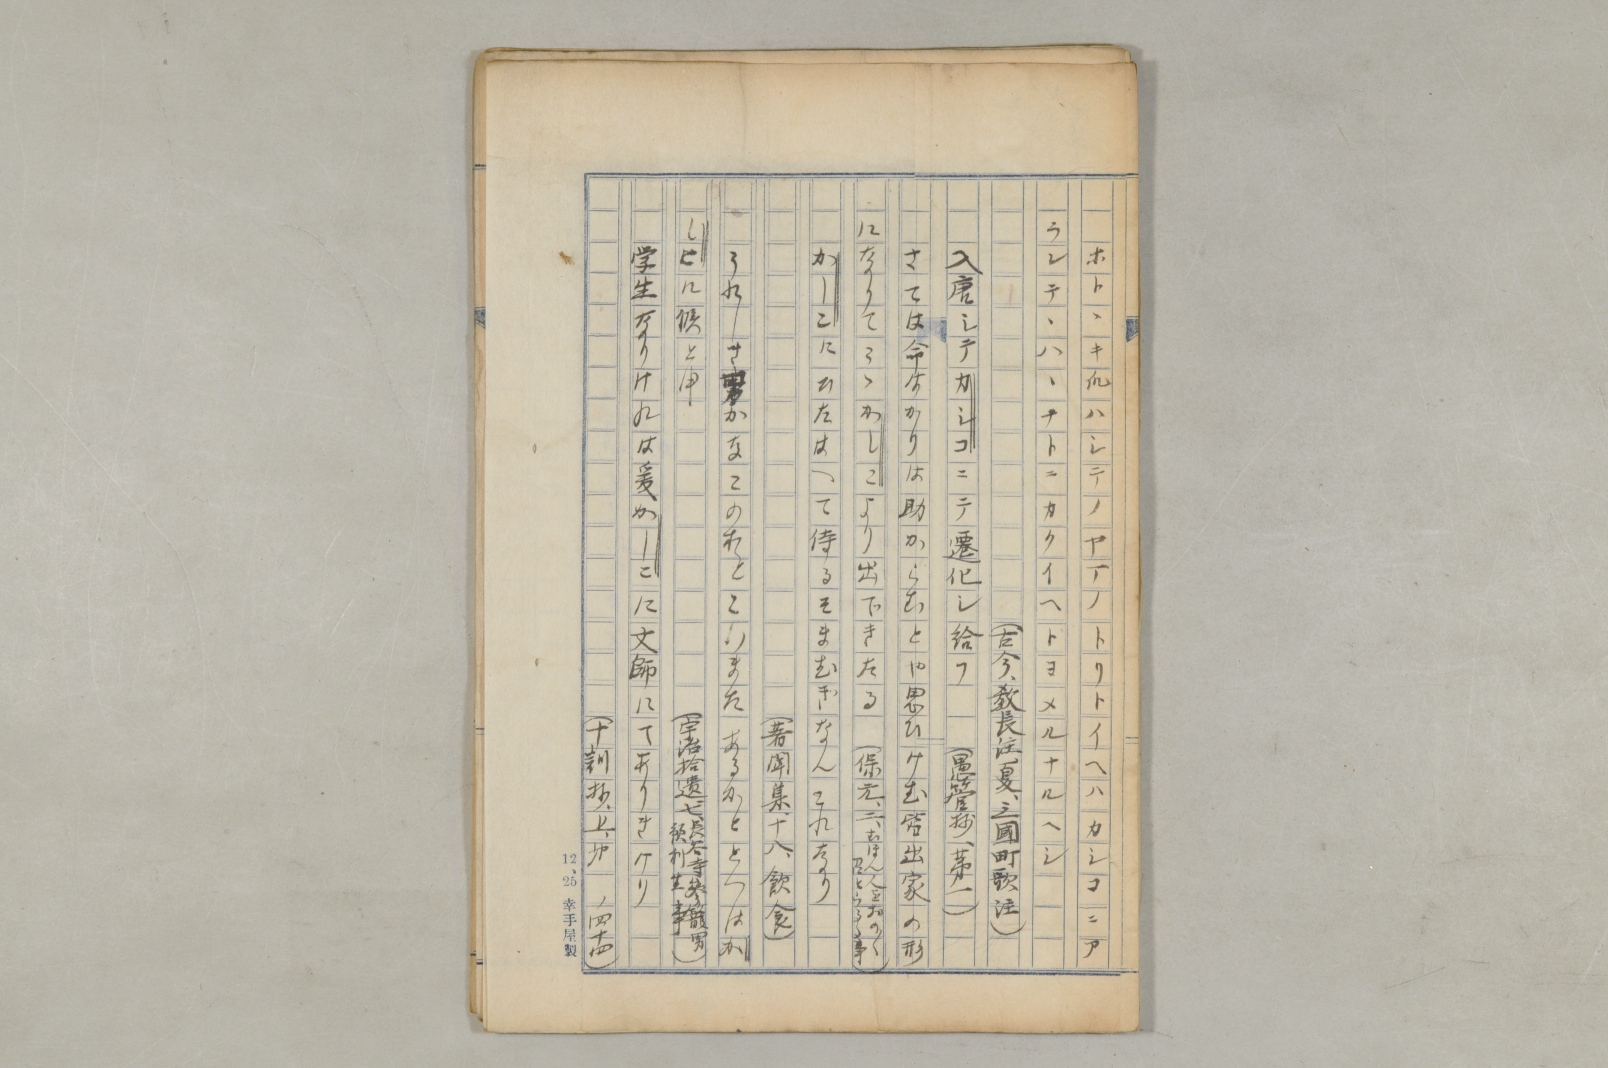 ホトヽキ仇ハシテノヤマノトリトイヘハカシコニア
ラシテヽハヽナトニカクイヘトヨメルナルヘシ
(古今、教長注、夏、三國町歌注)
入唐シテカシコニテ遷化シ給フ (愚管抄、第二)
さては命はかりは助からむとや思ひけむ皆出家の形
になりてこゝかしこより出できたる (保元、二、むほん人をおのく召とらるる事)
かしこにひたはへて侍るそまむぎなん これなり
(著聞集、十八、飲食)
うれしき かなこのおとこいまた あるかととへはか
しこに候と申
(宇治拾遺、七、長谷寺参籠男預利生事)
学生なりけれは爰かしこに文師にてありきけり
(十訓抄、上、 ノ四十四)
12、25 幸手屋製